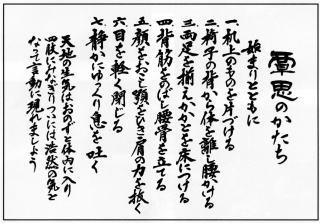 覃思のかたち
始まりとともに
一、机上のものを片づける
二、椅子の背から体を離し腰かける
三、両足を揃えかかとを床につける
四、背筋をのばし腰骨を立てる
五、顔をおこし顎をひき肩の力を抜く
六、目を軽く閉じる
七、静かにゆっくり息を吐く
天地の生気はおのずと体内に入り
四肢にみなぎりついには浩然の気と
なって言動に現れましょう